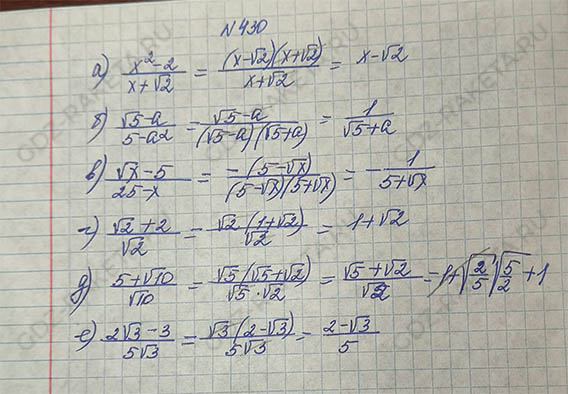 N430
а) x²-2/x+√2 = (x-√2)(x+√2)/x+√2 = x-√2
б) √5-a/5-a2 = √5-a/(√5-a)(√5+a) = 1/√5+a
в) √x-5/25-x = -(5-√x)/(5-√x)(5+√x) = -1/5+√x
г) √2+2/√2 = √2(1+√2)/√2 = 1+√2
д) 5+√10/√10 = √5(√5+√2)/√5·√2 = √5+√2/√2 = √5/2+1
е) 2√3-3/5√3 = √3(2-√3)/5√3 = 2-√3/5
GDZ-RAKETA.RU